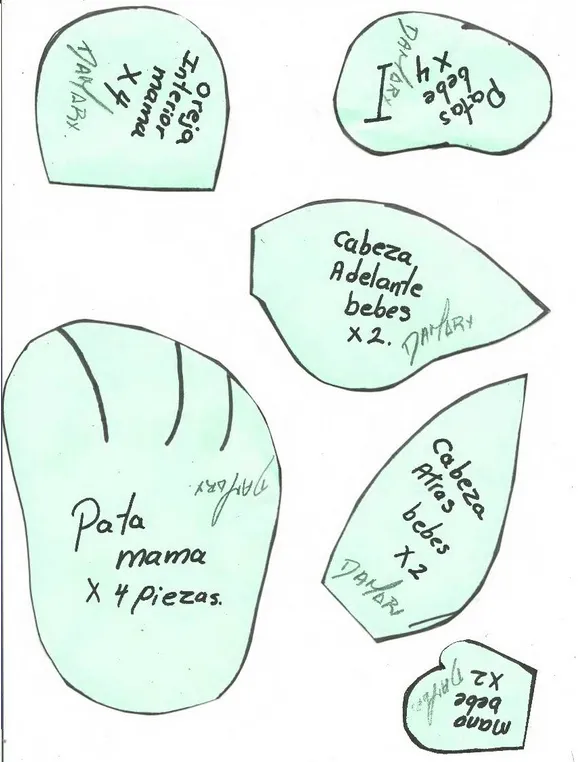 Oreja
Interior
mama
X 4
DAMARY
Patas
bebe
X 4
DAMARY
Cabeza
Adelante
bebes
X 2.
DAMARY
Pata
mama
X 4 piezas.
DAMARY
Cabeza
Atras
bebes
X 2
DAMARY
mano
bebe
X2
DAMARY